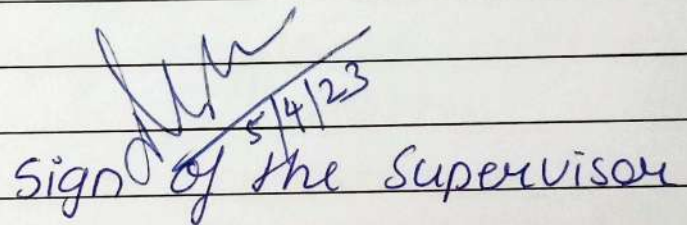 5/4/23
Sign of the Supervisor